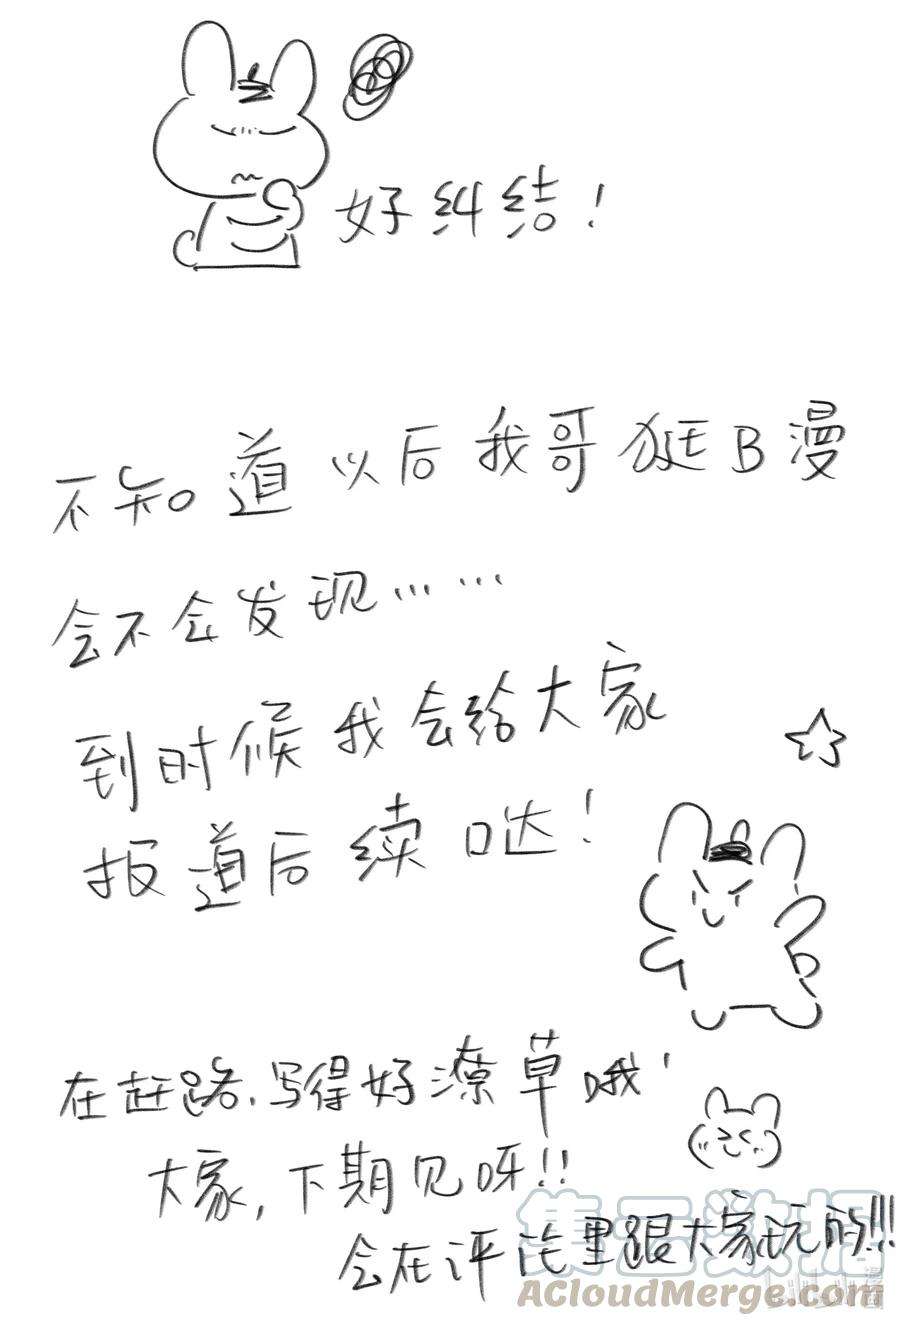 好纠结！
不知道以后我哥逛B漫
会不会发现……
到时候我会给大家
报道后续哒！
在赶路，写得好潦草哦！
大家，下期见呀!!
会在评论里跟大家玩的!!!
集云数据
ACloudMerge.com